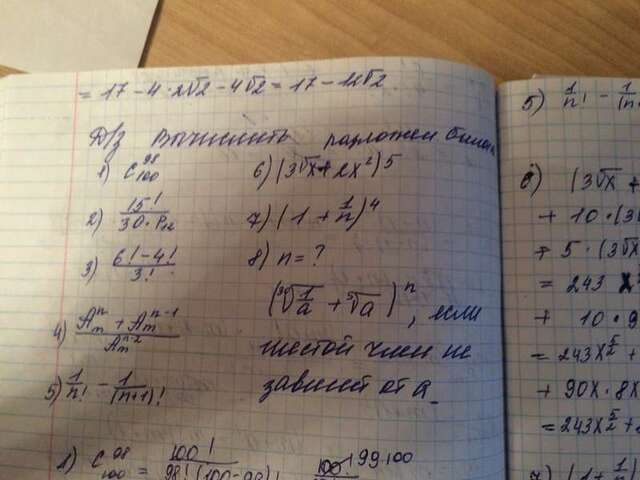 = 17 - 4 · 2√2 - 4√2 = 17 - 12√2
Д/з Вычислить разложен бином
1) C₁₀₀⁹⁸
2) 15! / 30 · P₁₂
3) 6! - 4! / 3!
4) Aₘⁿ + Aₘⁿ⁻¹ / Aₘⁿ⁻²
5) 1/n! - 1/(n+1)!
6) (3√x + 2x²)5
7) (1 + 1/n)⁴
8) n = ?
(√1/a + ⁵√a)ⁿ, если
шестой член не
зависит от a
1) C₁₀₀⁹⁸ = 100! / 98! (100-98)! 99 100
5) 1/n! - 1
6) (3√x +
+ 10 · (3
+ 5 · (3√x
= 243 x
+ 10 · 9
= 243x^5/2 +
+ 90x · 8x
= 243x^5/2 +
7) (1 + 1